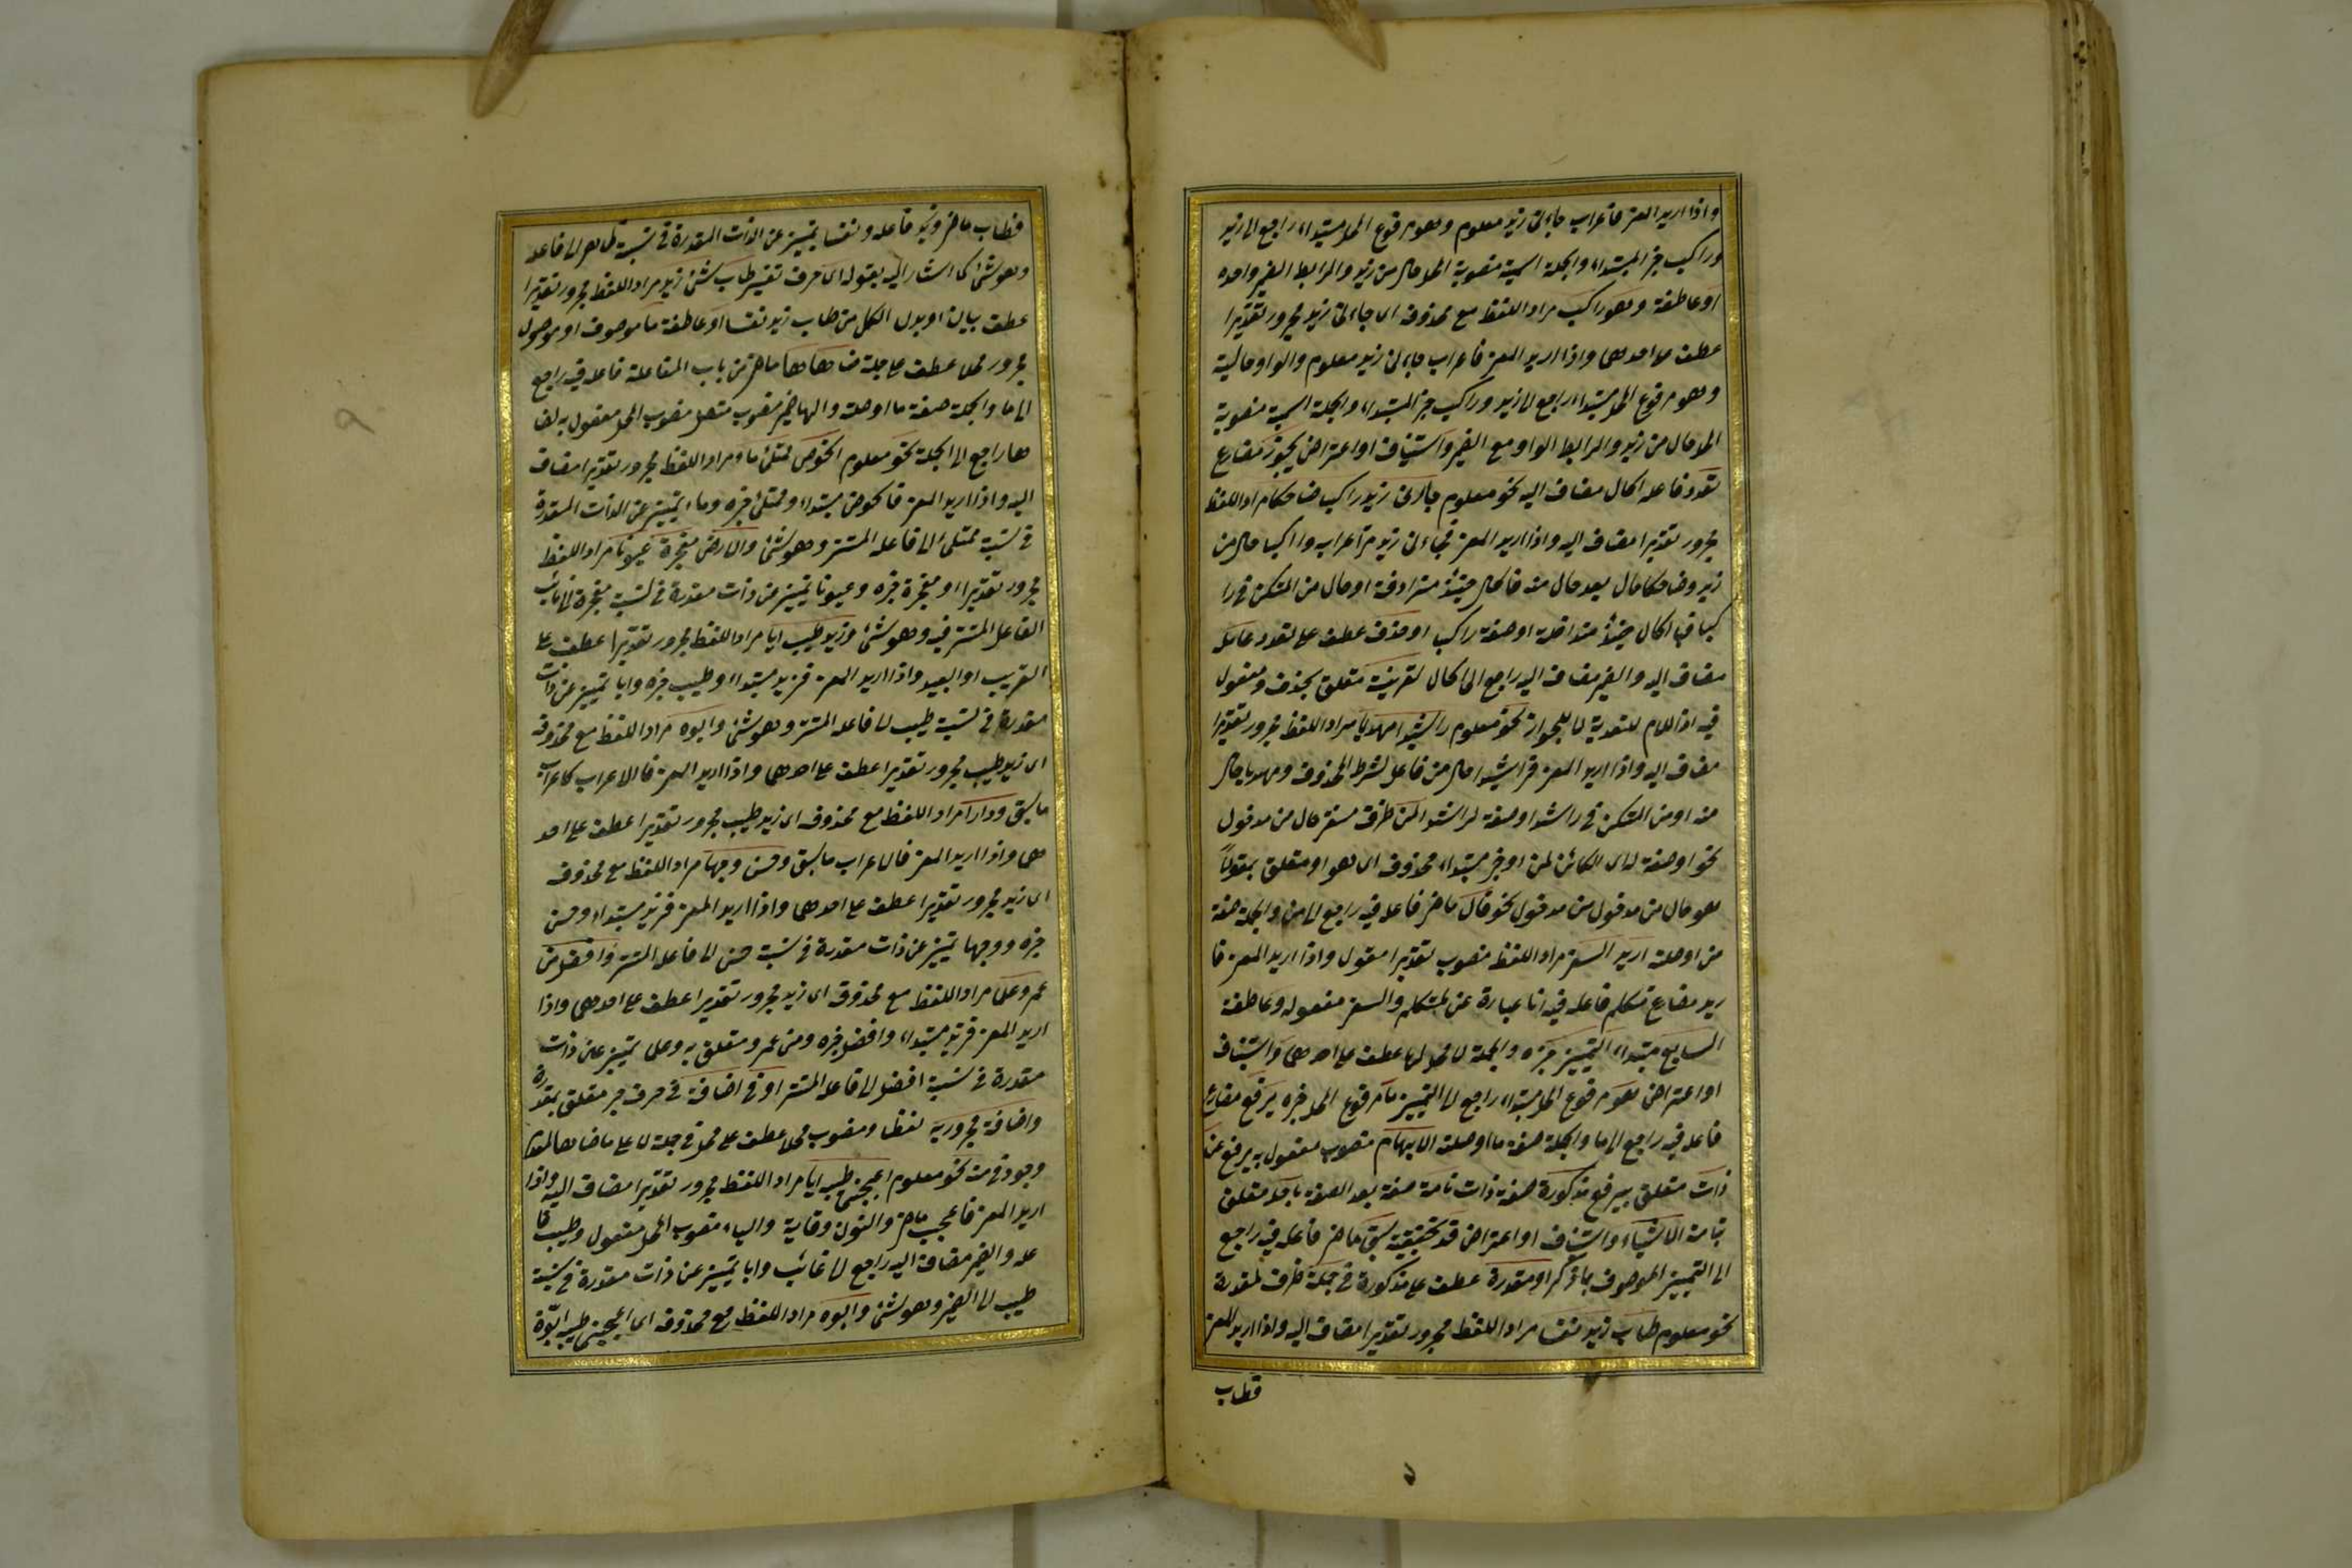 واذا اريد المعنى فاعراب جاءنى زيد معلوم وهو مرفوع المحل مبتداء راجع الى زيد
وراكب خبر المبتداء والجملة اسمية منصوبة المحل حال من زيد والرابط الضمير وحده
او عاطفة وهو راكب مراد اللفظ مع محذوفه اى جاءنى زيد مجرور تقديرا
عطف على احدهما واذا اريد المعنى فاعراب جاءنى زيد معلوم والواو حالية
وهو مرفوع المحل مبتداء راجع الى زيد وراكب خبر المبتداء والجملة اسمية منصوبة
المحل حال من زيد والرابط الواو مع الضمير واستيناف او اعتراض يجوز مضارع
تعدد فاعله الحال مضاف اليه نحو معلوم جاءنى زيد راكبا ضاحكا مراد اللفظ
مجرور تقديرا مضاف اليه واذا اريد المعنى فجاءنى زيد مر اعرابه وراكبا حال من
زيد وضاحكا حال بعد حال منه فالحال حينئذ مترادفة او حال من المستكن فى را
كبا فالحال حينئذ متداخلة او صفة راكبا او حذف عطف على تعدد عامله
مضاف اليه والضمير مضاف اليه راجع الى الحال لقرينة متعلق بحذف ومفعول
فيه اذ اللام للتعدية لا للجواز نحو معلوم راشدا مهديا مراد اللفظ مجرور تقديرا
مضاف اليه واذا اريد المعنى فراشدا حال من فاعل لشرط المحذوف ومهديا حال
منه او من المستكن فى راشدا او صفة لراشدا لمن ظرف مستقر حال من مدخول
نحو او صفة له اى الكائن لمن او خبر مبتداء محذوف اى هو او متعلق بمقولا
هو حال من مدخول من مدخول نحو قال ماض فاعله فيه راجع الى من والجملة صفة
من او صلته اريد السفر مراد اللفظ منصوب تقديرا مقول واذا اريد المعنى فا
ريد مضارع متكلم فاعله فيه انا عبارة عن المتكلم والسفر مفعوله وعاطفة
السابع مبتداء التمييز خبره والجملة لا محل لها عطف على احدهما واستيناف
او اعتراض هو مرفوع المحل مبتداء راجع الى التمييز ما مرفوع المحل خبره يرفع مضارع
فاعله فيه راجع الى ما والجملة صفة ما او صلته الابهام منصوب مفعول به يرفع عن
ذات متعلق بيرفع مذكورة صفة ذات تامة صفة بعد الصفة باحد متعلق
بتامة الاشياء واستيناف او اعتراض قد تحقيقية سبق ماض فاعله فيه راجع
الى التمييز الموصوف بما ذكر او مقدرة عطف على مذكورة فى جملة ظرف لمقدرة
نحو معلوم طاب زيد نفسا مراد اللفظ مجرور تقديرا مضاف اليه واذا اريد المعنى
فطاب
فطاب ماض وزيد فاعله ونفسا تمييز عن الذات المقدرة فى نسبة طاب الى فاعله
وهو شئ كما اشار اليه بقوله اى حرف تفسير طاب شئ زيد مراد اللفظ مجرور تقديرا
عطف بيان او بدل الكل من طاب زيد نفسا او عاطفة ما موصوف او موصول
مجرور محلا عطف على جملة ضاهاها ماض من باب المفاعلة فاعله فيه راجع
الى ما والجملة صفة ما او صلته والهاء ضمير منصوب متصل منصوب المحل مفعول به لضا
ها راجع الى الجملة نحو معلوم الحوض ممتلئ ماء مراد اللفظ مجرور تقديرا مضاف
اليه واذا اريد المعنى فالحوض مبتداء وممتلئ خبره وماء تمييز عن الذات المقدرة
فى نسبة ممتلئ الى فاعله المستتر وهو شئ والارض مفجرة عيونا مراد اللفظ
مجرور تقديرا او مفجرة خبره وعيونا تمييز عن ذات مقدرة فى نسبة مفجرة الى نائب
الفاعل المستتر فيه وهو شئ وزيد طيب ابا مراد اللفظ مجرور تقديرا عطف على
القريب او البعيد واذا اريد المعنى فزيد مبتداء وطيب خبره وابا تمييز عن ذات
مقدرة فى نسبة طيب الى فاعله المستتر وهو شئ وابوة مراد اللفظ مع محذوفه
اى زيد طيب مجرور تقديرا عطف على احدهما واذا اريد المعنى فالاعراب كاعراب
ما سبق ودارا مراد اللفظ مع محذوفه اى زيد طيب مجرور تقديرا عطف على احد
هما واذا اريد المعنى فالاعراب ما سبق وحسن وجها مراد اللفظ مع محذوفه
اى زيد مجرور تقديرا عطف على احدهما واذا اريد المعنى فزيد مبتداء وحسن
خبره ووجها تمييز عن ذات مقدرة فى نسبة حسن الى فاعله المستتر وافضل من
عمرو علما مراد اللفظ مع محذوفه اى زيد مجرور تقديرا عطف على احدهما واذا
اريد المعنى فزيد مبتداء وافضل خبره ومن عمرو متعلق به وعلما تمييز عن ذات
مقدرة فى نسبة افضل الى فاعله المستتر او فى اضافة فى حرف جر متعلق بمقدرة
واضافة مجرور به لفظا ومنصوب محلا عطف على محل فى جملة لا على ما ضاها لعدم
وجود فى منه نحو معلوم اعجبنى طيبه ابا مراد اللفظ مجرور تقديرا مضاف اليه واذا
اريد المعنى فاعجب ماض والنون وقاية والياء منصوب المحل مفعول وطيب فا
عله والضمير مضاف اليه راجع الى غائب وابا تمييز عن ذات مقدرة فى نسبة
طيب الى الضمير وهو شئ وابوة مراد اللفظ مع محذوفه اى اعجبنى طيبه ابوة